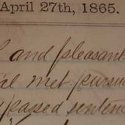 April 27th, 1865.
and pleasant
met pursu
passed senten